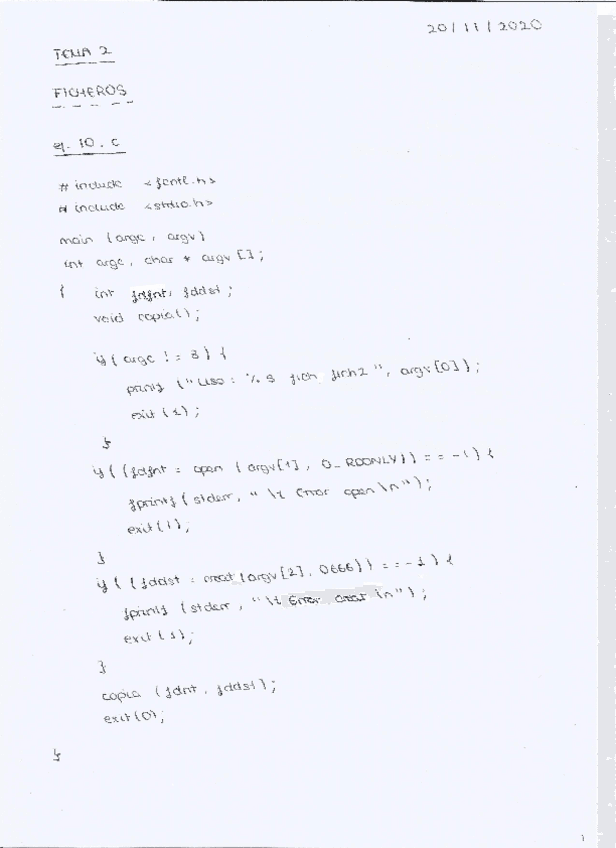 20/11/2020
TEMA 2
FICHEROS
ej. 10.c
# include <fcntl.h>
# include <stdio.h>
main (argc, argv)
int argc, char * argv [];
{ int fdfnt, fddst;
void copia();
if( argc != 3) {
printf ("Uso: %s fich fich2", argv[0]);
exit (1);
}
if( (fdfnt = open (argv[1], O_RDONLY)) == -1) {
fprintf( stderr, "\t Error open \n");
exit(1);
}
if( (fddst = creat (argv[2], 0666)) == -1) {
fprintf (stderr, "\t Error creat \n");
exit (1);
}
copia (fdnt, fddst);
exit(0);
}
1